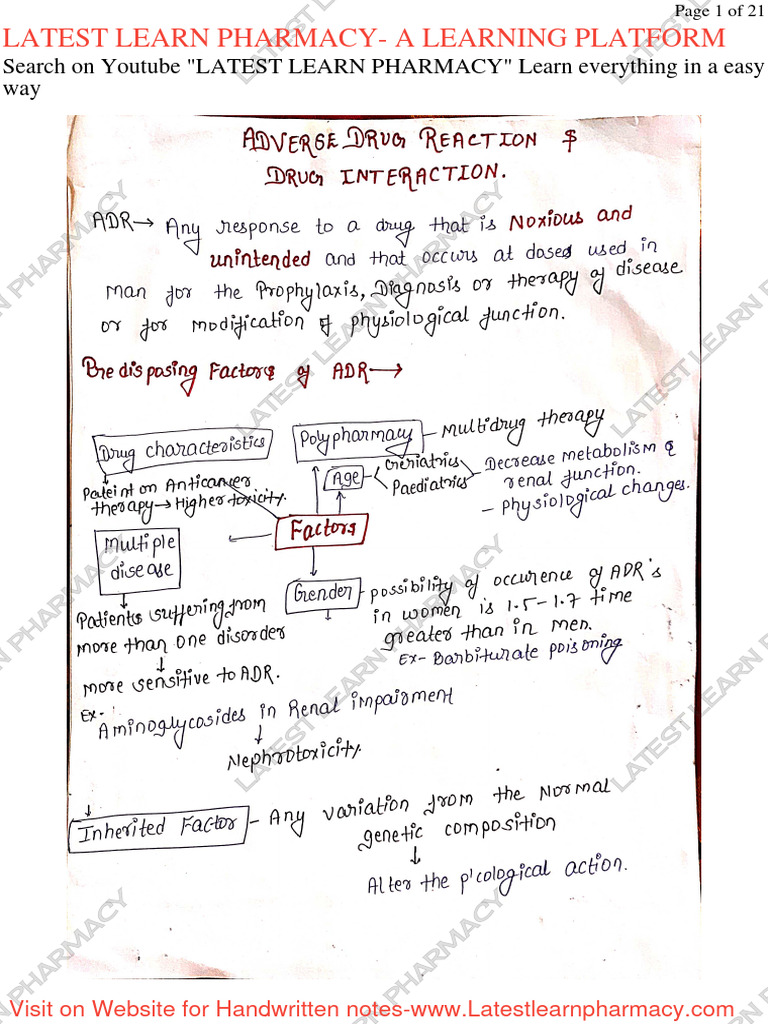 Page 1 of 21
LATEST LEARN PHARMACY- A LEARNING PLATFORM
Search on Youtube "LATEST LEARN PHARMACY" Learn everything in a easy
way
ADVERSE DRUG REACTION &
DRUG INTERACTION.
ADR→ Any response to a drug that is Noxious and
unintended and that occurs at doses used in
Man for the Prophylaxis, Diagnosis or therapy of disease
or for modification of physiological function.
Predisposing Factors of ADR→
Drug characteristics
Pateint on Anticancer
therapy→Higher toxicity.
Polypharmacy - Multidrug therapy
Age
Geriatrics
Paediatrics
- Decrease metabolism &
renal function.
- Physiological changes.
Factors
Multiple
disease
Patients suffering from
more than one disorder
↓
more sensitive to ADR.
Ex-
Aminoglycosides in Renal impairment
↓
Nephrotoxicity.
Gender - possibility of occurence of ADR's
in women is 1.5-1.7 time
greater than in men.
Ex- Barbiturate poisoning
Inherited Factor - Any variation from the Normal
genetic composition
↓
Alter the p'cological action.
LATEST LEARN PHARMACY
Visit on Website for Handwritten notes-www.Latestlearnpharmacy.com